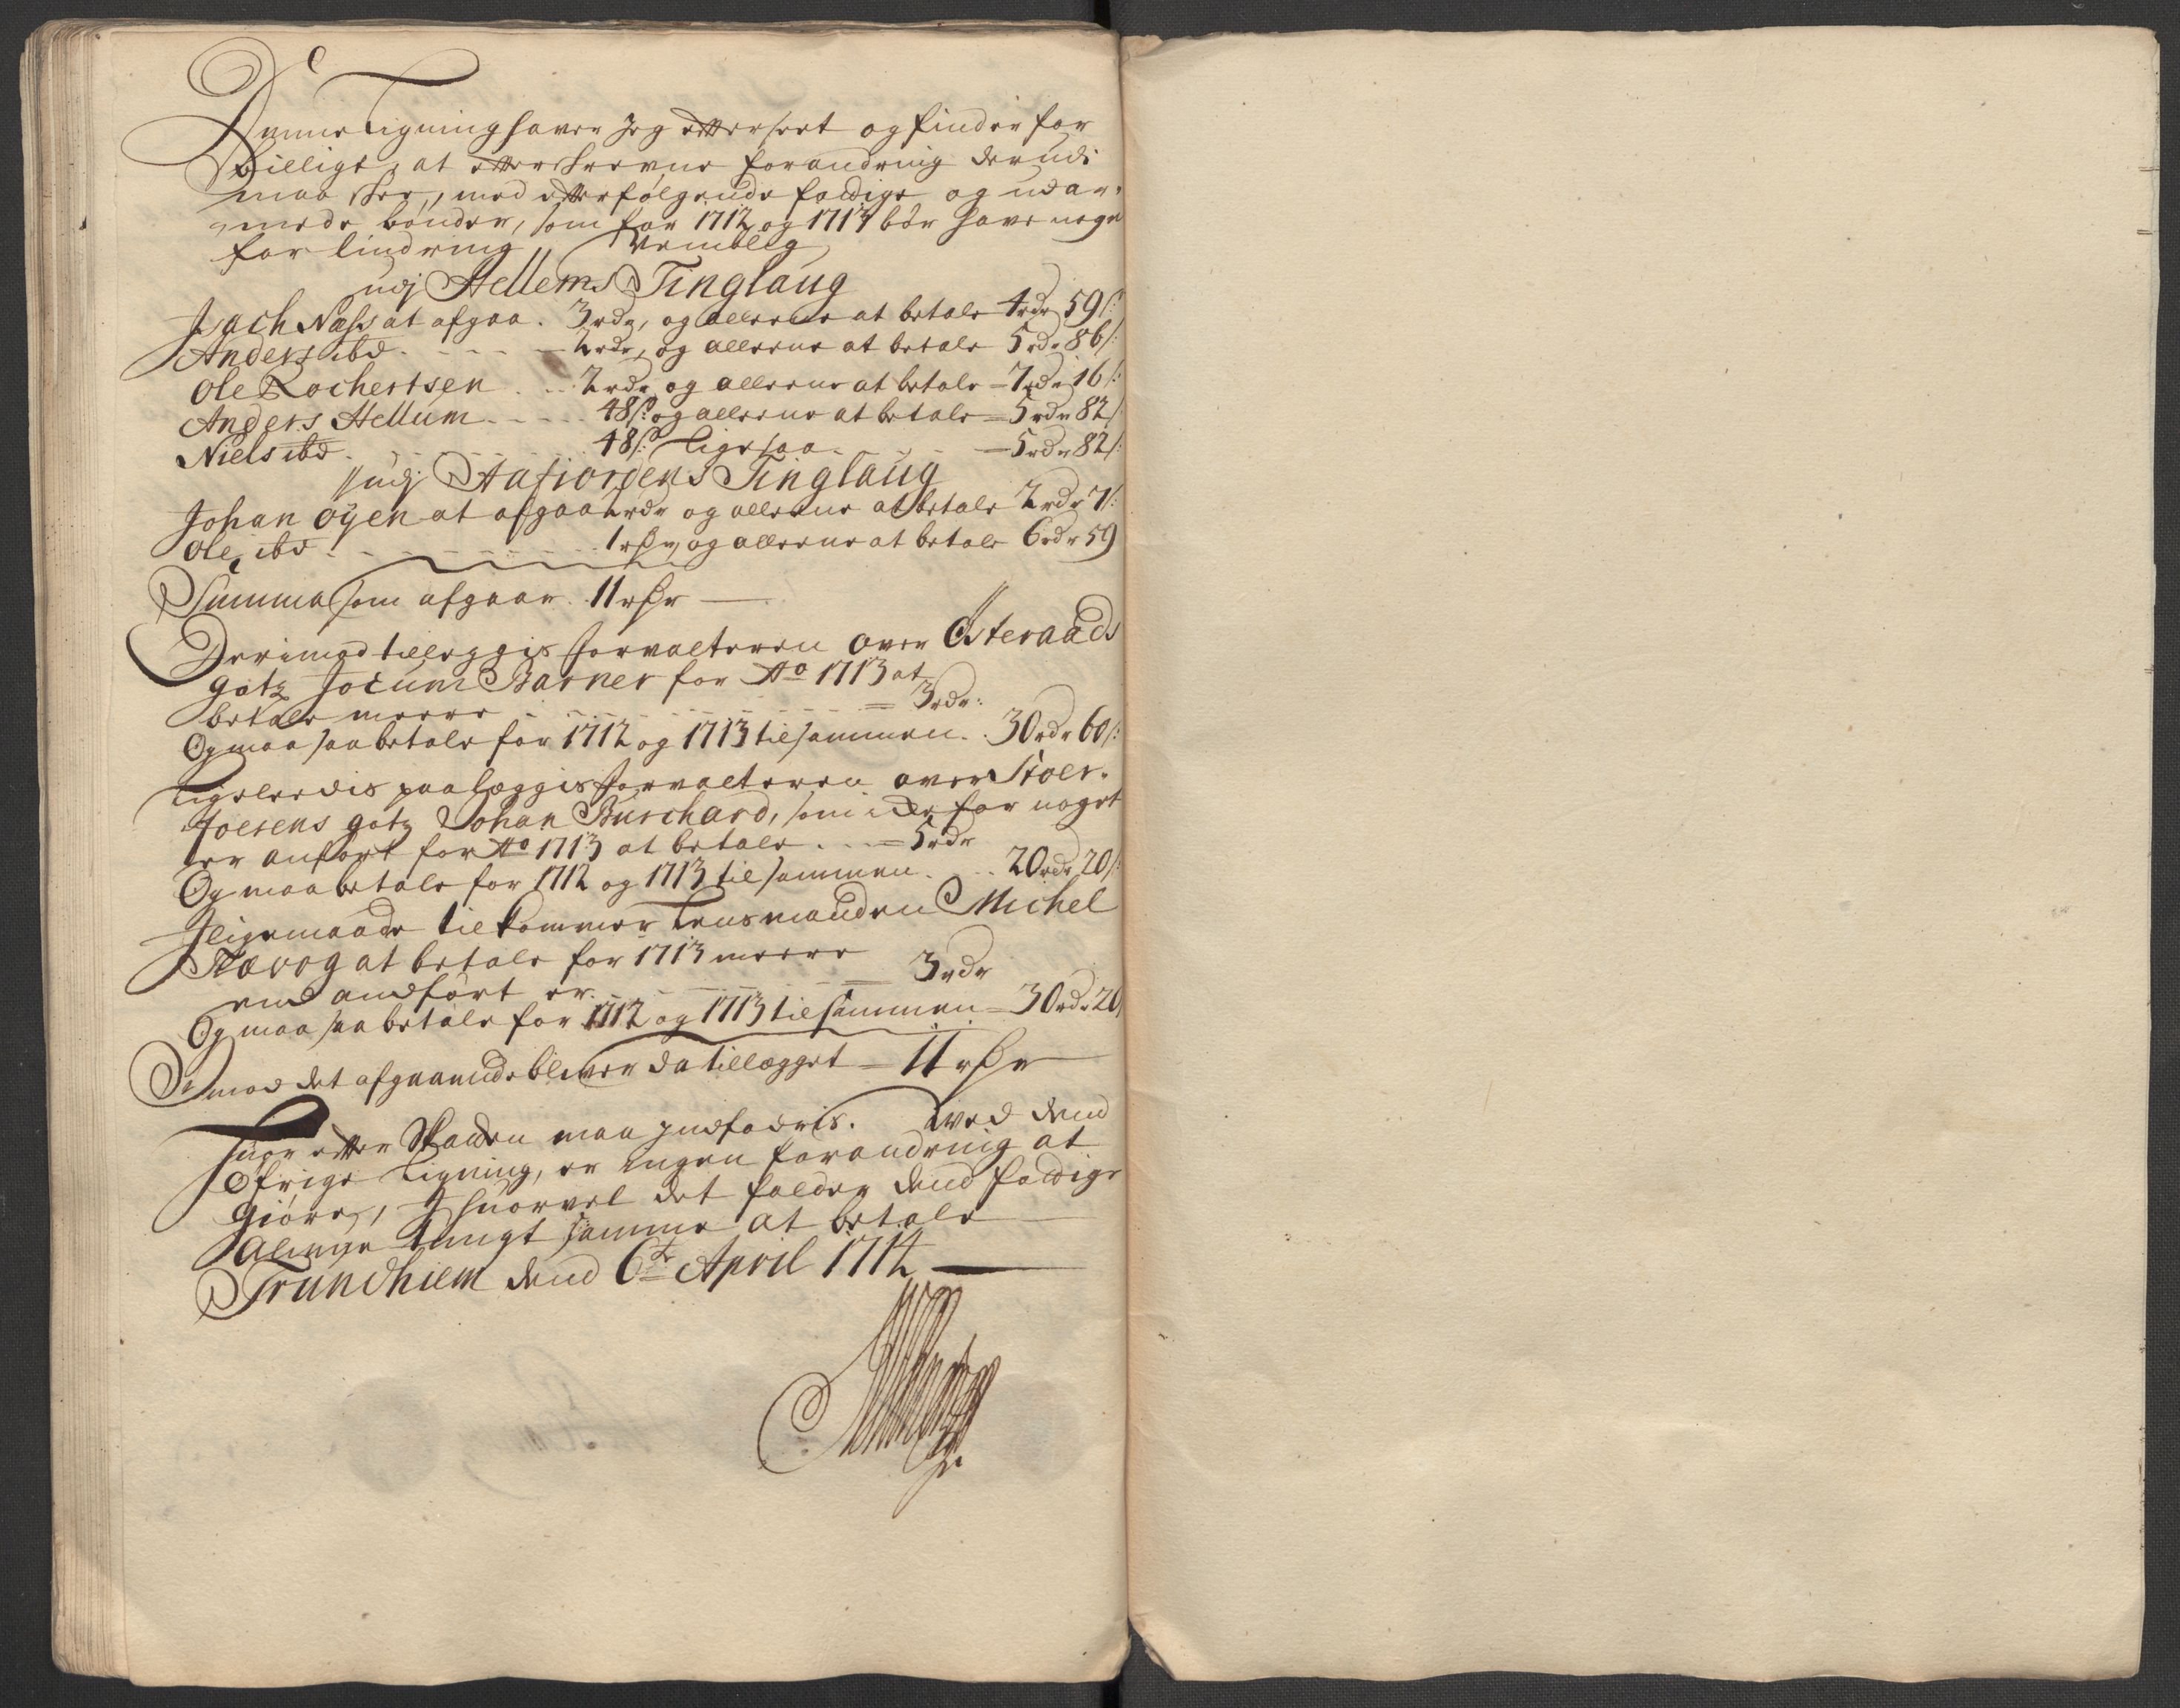 Denne Ligning haver Jeg efterseet og finder for
Billigt, at efterskrevne forandring derudi
maa skee, med efterfølgende fattige og udar-
mede bønder, som for 1712 og 1713 bør have noge
forlindring Nemblig
udj Hellems Tinglaug
Zach Næss at afgaa . 3 rdr, og alleene at betale 4 rdr 59 s:
Anders ibd . - - - - 2 rdr, og alleene at betale 5 rdr 86 s:
Ole Rochertsen . .. 2 rdr og alleene at betale = 7 rdr 16 s:
Anders Hellum - - - - 48 s: og alleene at betale = 5 rdr 82 s
Niels ibd - - - - 48 s: Ligesaa - - - 5 rdr 82 s:
udj Aafiordens Tinglaug
Johan Øyen at afgaa 2 rdr og alleene at betale 2 rdr 7 s:
Ole ibd - - - - - 1 rdr, og alleene at betale 6 rdr 59
Summa som afgaar . 11 rdr —
Derimod tilleggis forvalteren over Østeraads
gotz Jocum Barner for Ao 1713 at
betale meere - - - - - = 3 rdr:
Og maa saa betale for 1712 og 1713 tilsammen . 30 rdr 60 s:
Ligeledis paalæggis forvalteren over Stoer-
foesens gotz Johan Burchard, som icke for noget
er anført for Ao 1713 at betale . . . = 5 rdr
Og maa betale for 1712 og 1713 tilsammen . . . 20 rdr 20 s:
Jligemaade tilkommer Lensmanden Michel
at betale for 1713 meere
end andført er . - - - - = 3 rdr
Og maa saa betale for 1712 og 1713 tilsammen = 30 rdr 20
Jmod det afgaaende bliver da tillægget = 11 rdr
huor efter Skatten maa indfodris. Ved dend
øfrige Ligning, er ingen forandring at
giøre, huorvel det falder dend fattige
Almue tungt samme at betale
Trundhiem dend 6te April 1714